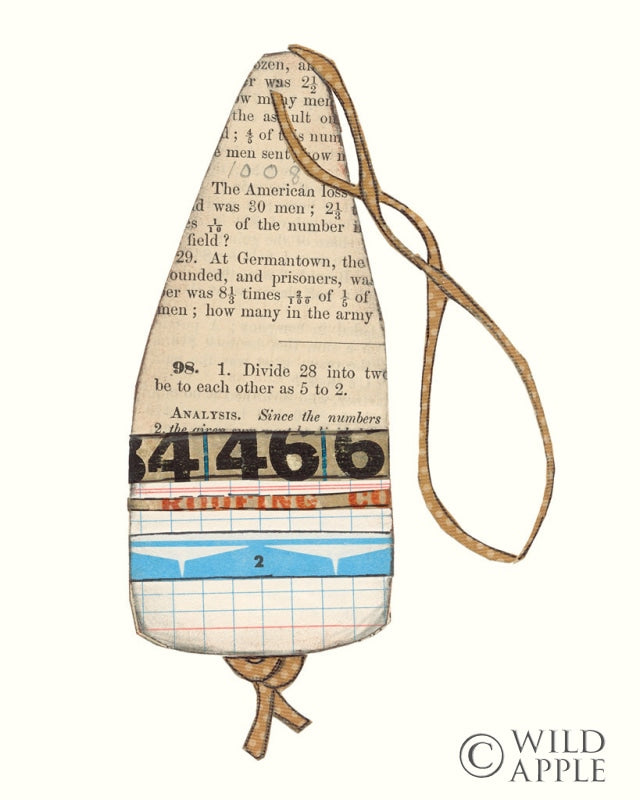 ozen, an
r was 2½
ow many men
the assault on
d; ⅘ of this num
e men sent how n
1008
The American loss
d was 30 men; 2⅓
es 1/10 of the number i
field?
29. At Germantown, the
ounded, and prisoners, was
er was 8⅓ times 2/100 of ⅕ of
men; how many in the army
98. 1. Divide 28 into two
be to each other as 5 to 2.
ANALYSIS. Since the numbers
2, the given sum must be divided
34 46 6
ROOFING CO
2
© WILD
APPLE